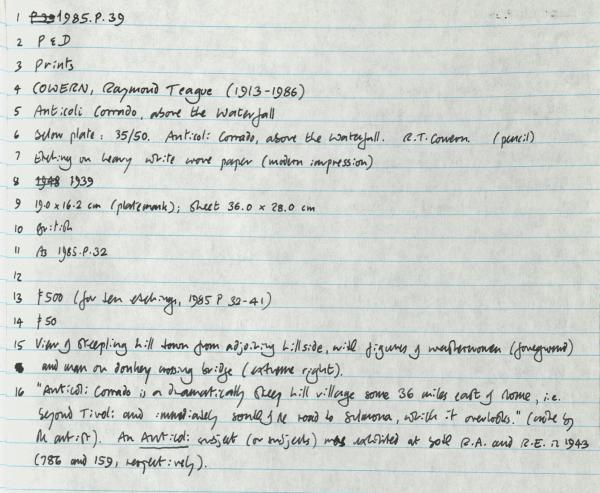 1 P.39 1985.P.39
2 P & D
3 Prints
4 COWERN, Raymond Teague (1913-1986)
5 Anticoli Corrado, above the Waterfall
6 Below plate: 35/50. Anticoli Corrado, above the Waterfall. R.T. Cowern. (pencil)
7 Etching on heavy white wove paper (modern impression)
8 1948 1939
9 19.0 x 16.2 cm (platemark); sheet 36.0 x 28.0 cm
10 British
11 As 1985.P.32
12
13 £500 (for ten etchings, 1985 P 32-41)
14 £50
15 View of steepling hill town from adjoining hillside, with figures of washerwomen (foreground)
and man on donkey crossing bridge (extreme right).
16 "Anticoli Corrado is a dramatically steep hill village some 36 miles east of Rome, i.e.
beyond Tivoli and immediately south of the road to Sulmona, which it overlooks." (note by
the artist). An Anticoli subject (or subjects) was exhibited at both R.A. and R.E. in 1943
(786 and 159, respectively).